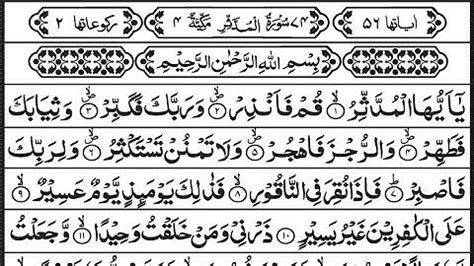 اٰیاتها ٥٦ ٧٤ سُوْرَةُ الْمُدَّثِّرِ مَكِّيَّةٌ ٤ ركوعاتها ٢
بِسْمِ اللّٰهِ الرَّحْمٰنِ الرَّحِيْمِ
يٰۤاَيُّهَا الْمُدَّثِّرُ ۙ﴿١﴾ قُمْ فَاَنْذِرْ ۪ۙ﴿٢﴾ وَرَبَّكَ فَكَبِّرْ ۪ۙ﴿٣﴾ وَثِيَابَكَ
فَطَهِّرْ ۪ۙ﴿٤﴾ وَالرُّجْزَ فَاهْجُرْ ۪ۙ﴿٥﴾ وَلَا تَمْنُنْ تَسْتَكْثِرُ ۪ۙ﴿٦﴾ وَلِرَبِّكَ
فَاصْبِرْ ؕ﴿٧﴾ فَاِذَا نُقِرَ فِی النَّاقُوْرِ ۙ﴿٨﴾ فَذٰلِكَ يَوْمَئِذٍ يَّوْمٌ عَسِيْرٌ ۙ﴿٩﴾
عَلَی الْكٰفِرِيْنَ غَيْرُ يَسِيْرٍ ﴿١٠﴾ ذَرْنِیْ وَمَنْ خَلَقْتُ وَحِيْدًا ۙ﴿١١﴾ وَّجَعَلْتُ